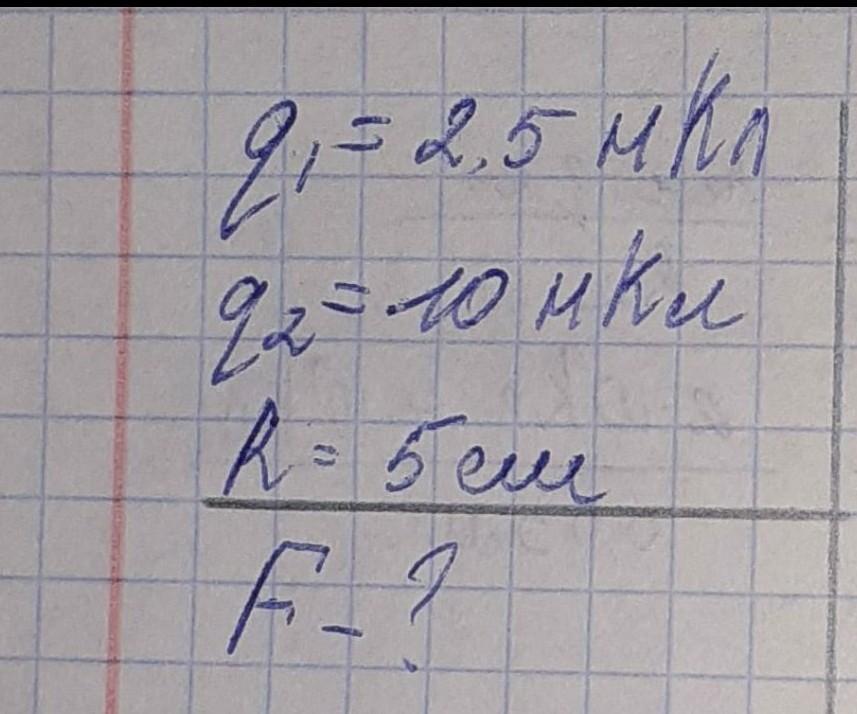 q₁ = 2,5 нКл
q₂ = 10 нКл
R = 5 см
F - ?